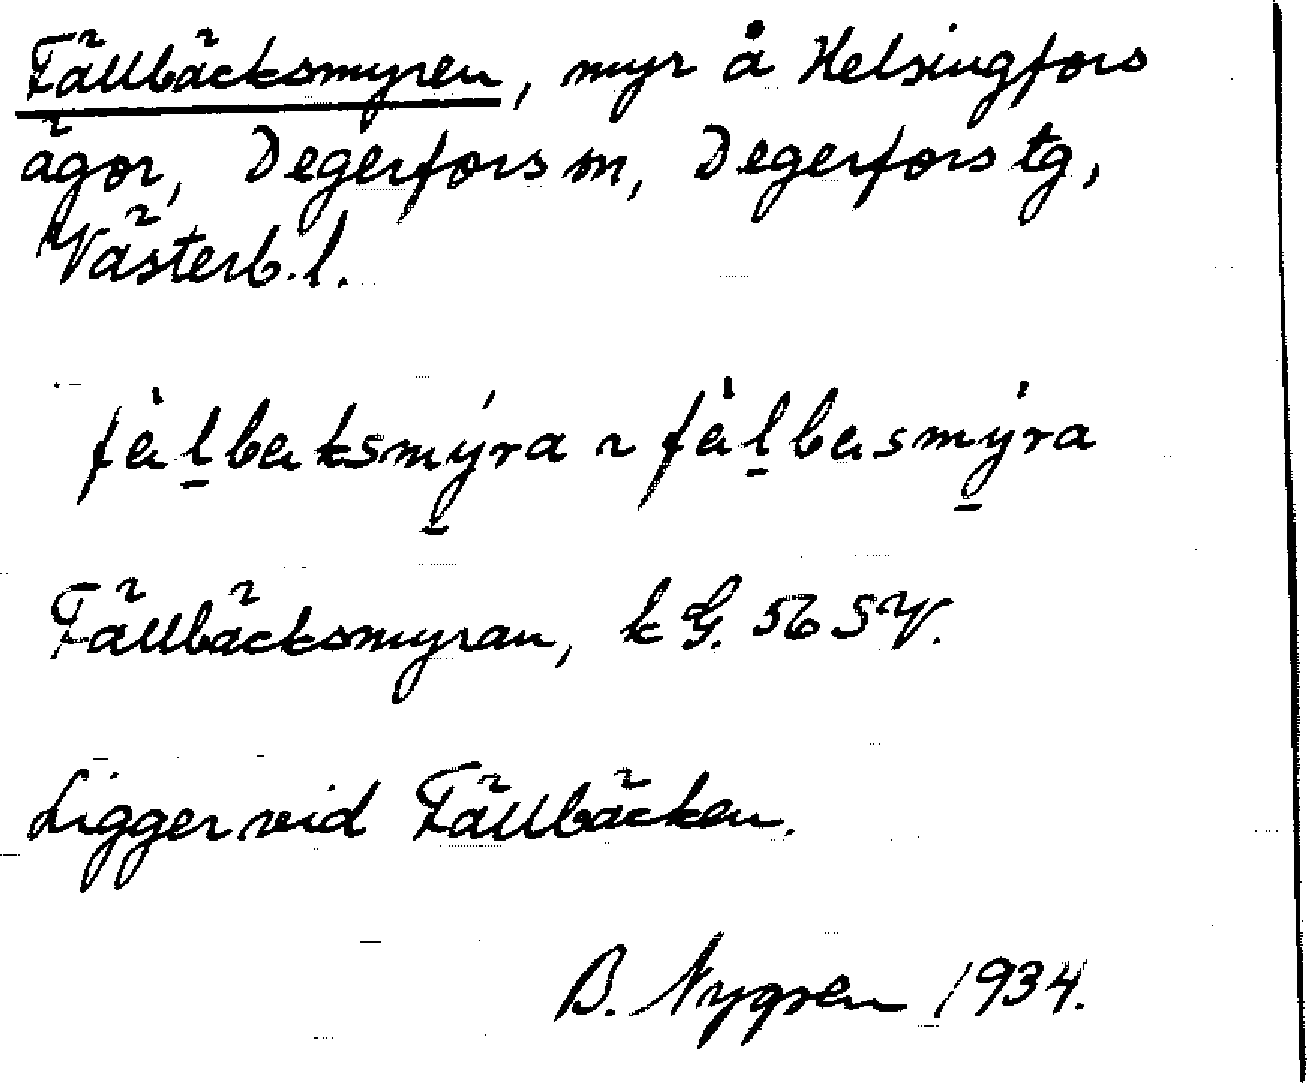 Fällbäcksmyren, myr å Helsingfors
ägor, Degerfors sn, Degerfors tg,
Västerb. l.
fàḻbaksmý̱ra ~ fàḻbasmý̱ra
Fällbäcksmyran, k G. 56 SV.
Ligger vid Fällbäcken.
B. Nygren 1934.